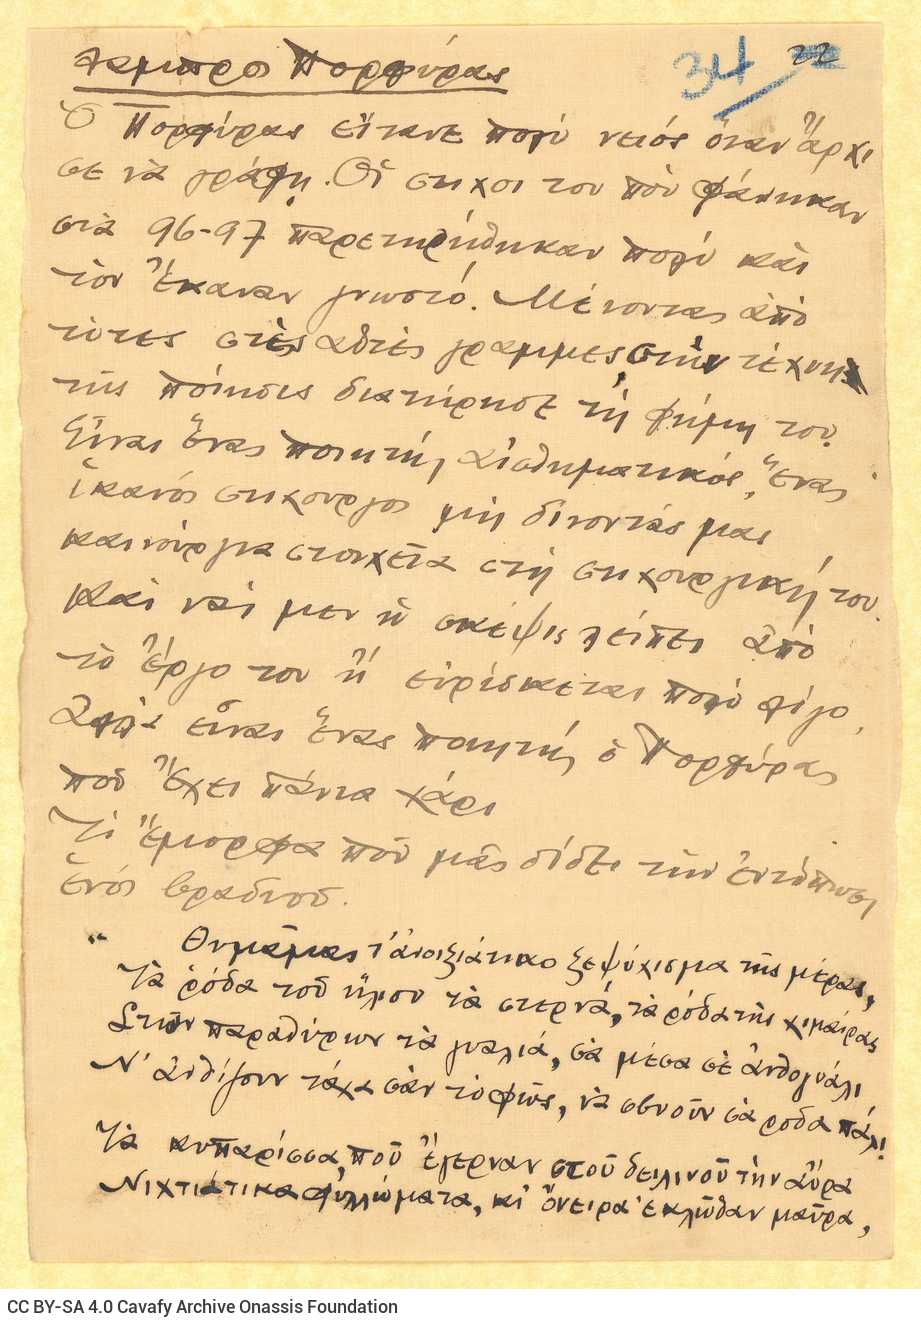 Λάμπρος Πορφύρας
34 22
Ὁ Πορφύρας εἴτανε πολύ νειός ὅταν ἄρχι
σε νὰ γράφῃ. Οἱ στιχοι του ποὺ φάνηκαν
στὰ 96-97 παρετηρήθηκαν πολύ καὶ
τὸν ἔκαναν γνωστό. Μένοντας ἀπὸ
τότες στὲς αὐτὲς γραμμες στὴν τέχνη
τῆς ποίησις διατήρησε τὴ φήμη του.
Εἶναι ἕνας ποιητής αἰσθηματικός, ἕνας
ἱκανός στιχουργος μὴ δίνοντάς μας
καινούργια στοιχεῖα στὴ στιχουργική του.
Καὶ ναὶ μεν ἡ σκέψις λείπει ἀπὸ
τὸ ἔργο του ἢ εὑρίσκεται πολύ λίγο,
ἀλλὰ εἶναι ἕνας ποιητής ὁ Πορφύρας
ποὺ ἔχει πάντα χάρι
Τί ἔμορφα ποὺ μᾶς δίδει τὴν ἐντύπωσι
ἑνός βραδινοῦ.
" Θυμᾶμαι τ' ἀνοιξιάτικο ξεψύχισμα τῆς μέρας,
Τὰ ρόδα τοῦ ἥλιου τὰ στερνά, τὰ ρόδα τῆς χιμαίρας
Στῶν παραθύρων τὰ γυαλιά, σὰ μέσα σὲ ἀνθογυάλι
Ν' ἀνθίζουν τάχα σὰν τὸ φῶς, νὰ σβυοῦν σὰ ροδα πάλι!
Τὰ κυπαρίσσα, ποῦ ἔγερναν στοῦ δειλινοῦ τὴν αὔρα
Νιχτιάτικα φυλλώματα, κι' ὄνειρα ἐκλῶθαν μαῦρα,
CC BY-SA 4.0 Cavafy Archive Onassis Foundation